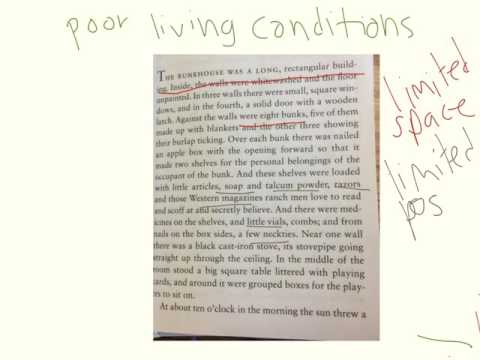 poor living conditions
THE BUNKHOUSE WAS A LONG, rectangular build-
ing. Inside, the walls were whitewashed and the floor
unpainted. In three walls there were small, square win-
dows, and in the fourth, a solid door with a wooden
latch. Against the walls were eight bunks, five of them
made up with blankets and the other three showing
their burlap ticking. Over each bunk there was nailed
an apple box with the opening forward so that it
made two shelves for the personal belongings of the
occupant of the bunk. And these shelves were loaded
with little articles, soap and talcum powder, razors
and those Western magazines ranch men love to read
and scoff at and secretly believe. And there were med-
icines on the shelves, and little vials, combs; and from
nails on the box sides, a few neckties. Near one wall
there was a black cast-iron stove, its stovepipe going
straight up through the ceiling. In the middle of the
room stood a big square table littered with playing
cards, and around it were grouped boxes for the play-
ers to sit on.
At about ten o'clock in the morning the sun threw a
limited
space
limited
pos